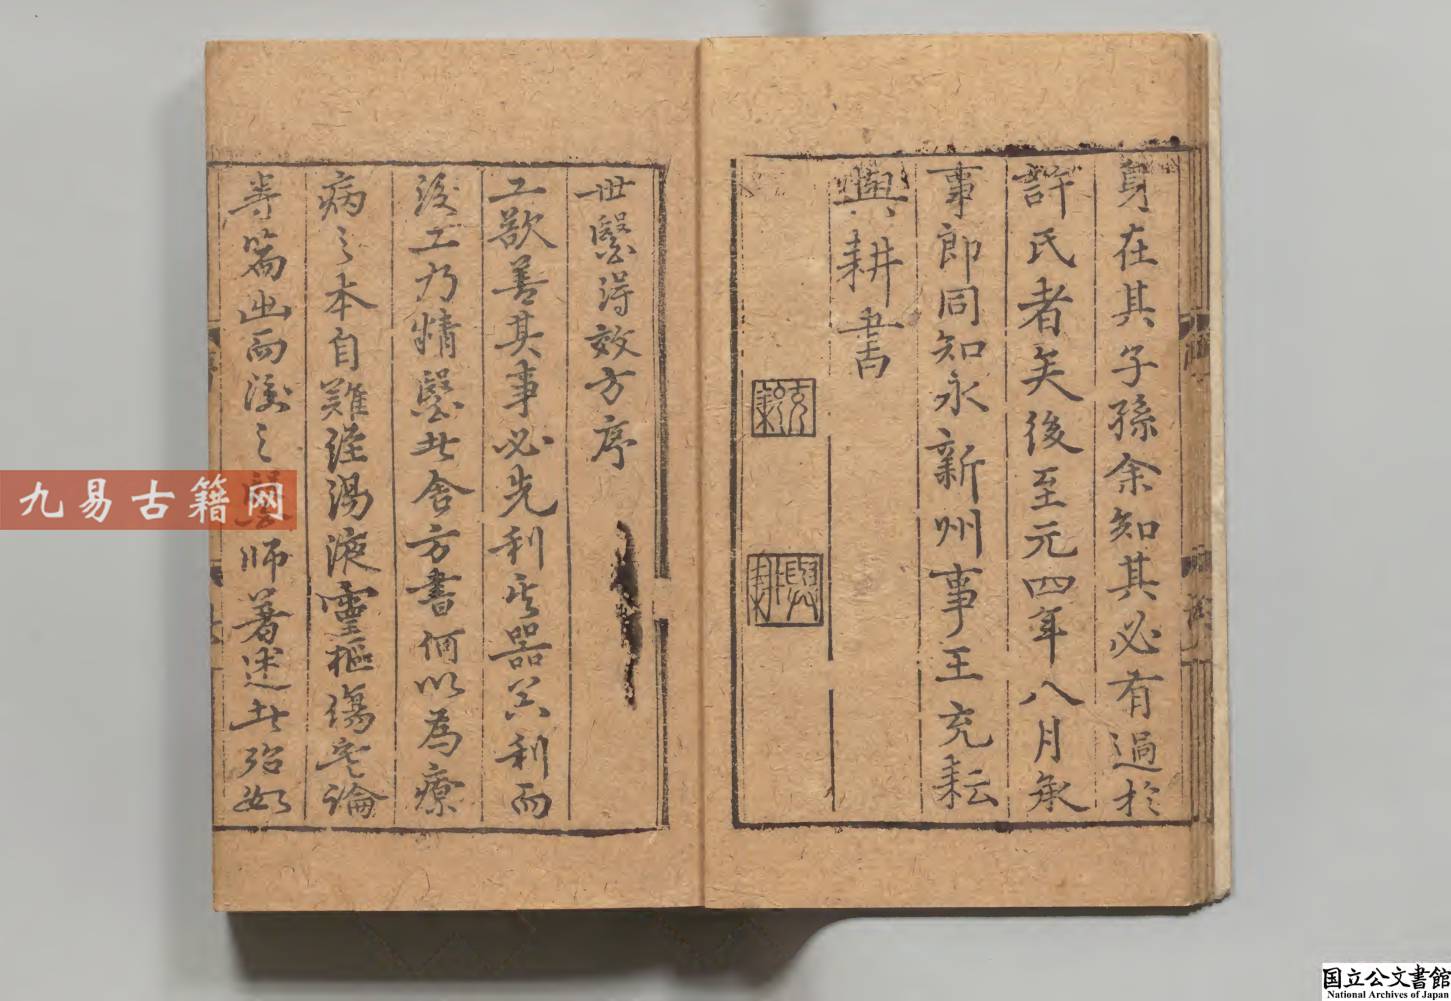 身在其子孫余知其必有過於
許氏者矣後至元四年八月承
事郎同知永新州事王充耘
與耕書
耕
與耕
世醫得效方序
工欲善其事必先利其器器利而
後工乃精醫此舍方書何以為療
病之本自難經湯液靈樞傷寒論
等篇出而後之醫師著述此殆如
九易古籍网
国立公文書館
National Archives of Japan